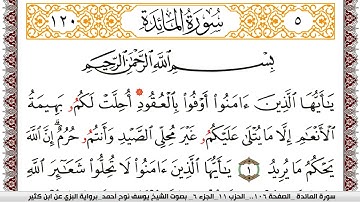 ٥ سُورَةُ المَائِدَة ١٢٠
بِسْمِ اللَّهِ الرَّحْمَٰنِ الرَّحِيمِ
يَٰٓأَيُّهَا ٱلَّذِينَ ءَامَنُوٓا۟ أَوْفُوا۟ بِٱلْعُقُودِ أُحِلَّتْ لَكُمُۥ بَهِيمَةُ
ٱلْأَنْعَٰمِ إِلَّا مَا يُتْلَىٰ عَلَيْكُمُۥ غَيْرَ مُحِلِّى ٱلصَّيْدِ وَأَنتُمُۥ حُرُمٌ إِنَّ ٱللَّهَ
يَحْكُمُ مَا يُرِيدُ ١ يَٰٓأَيُّهَا ٱلَّذِينَ ءَامَنُوا۟ لَا تُحِلُّوا۟ شَعَٰٓئِرَ ٱللَّهِ
سورة المائدة _الصفحة ١٠٦.. الحزب ١١_ الجزء ٦_ بصوت الشيخ يوسف نوح أحمد_برواية البزي عن ابن كثير